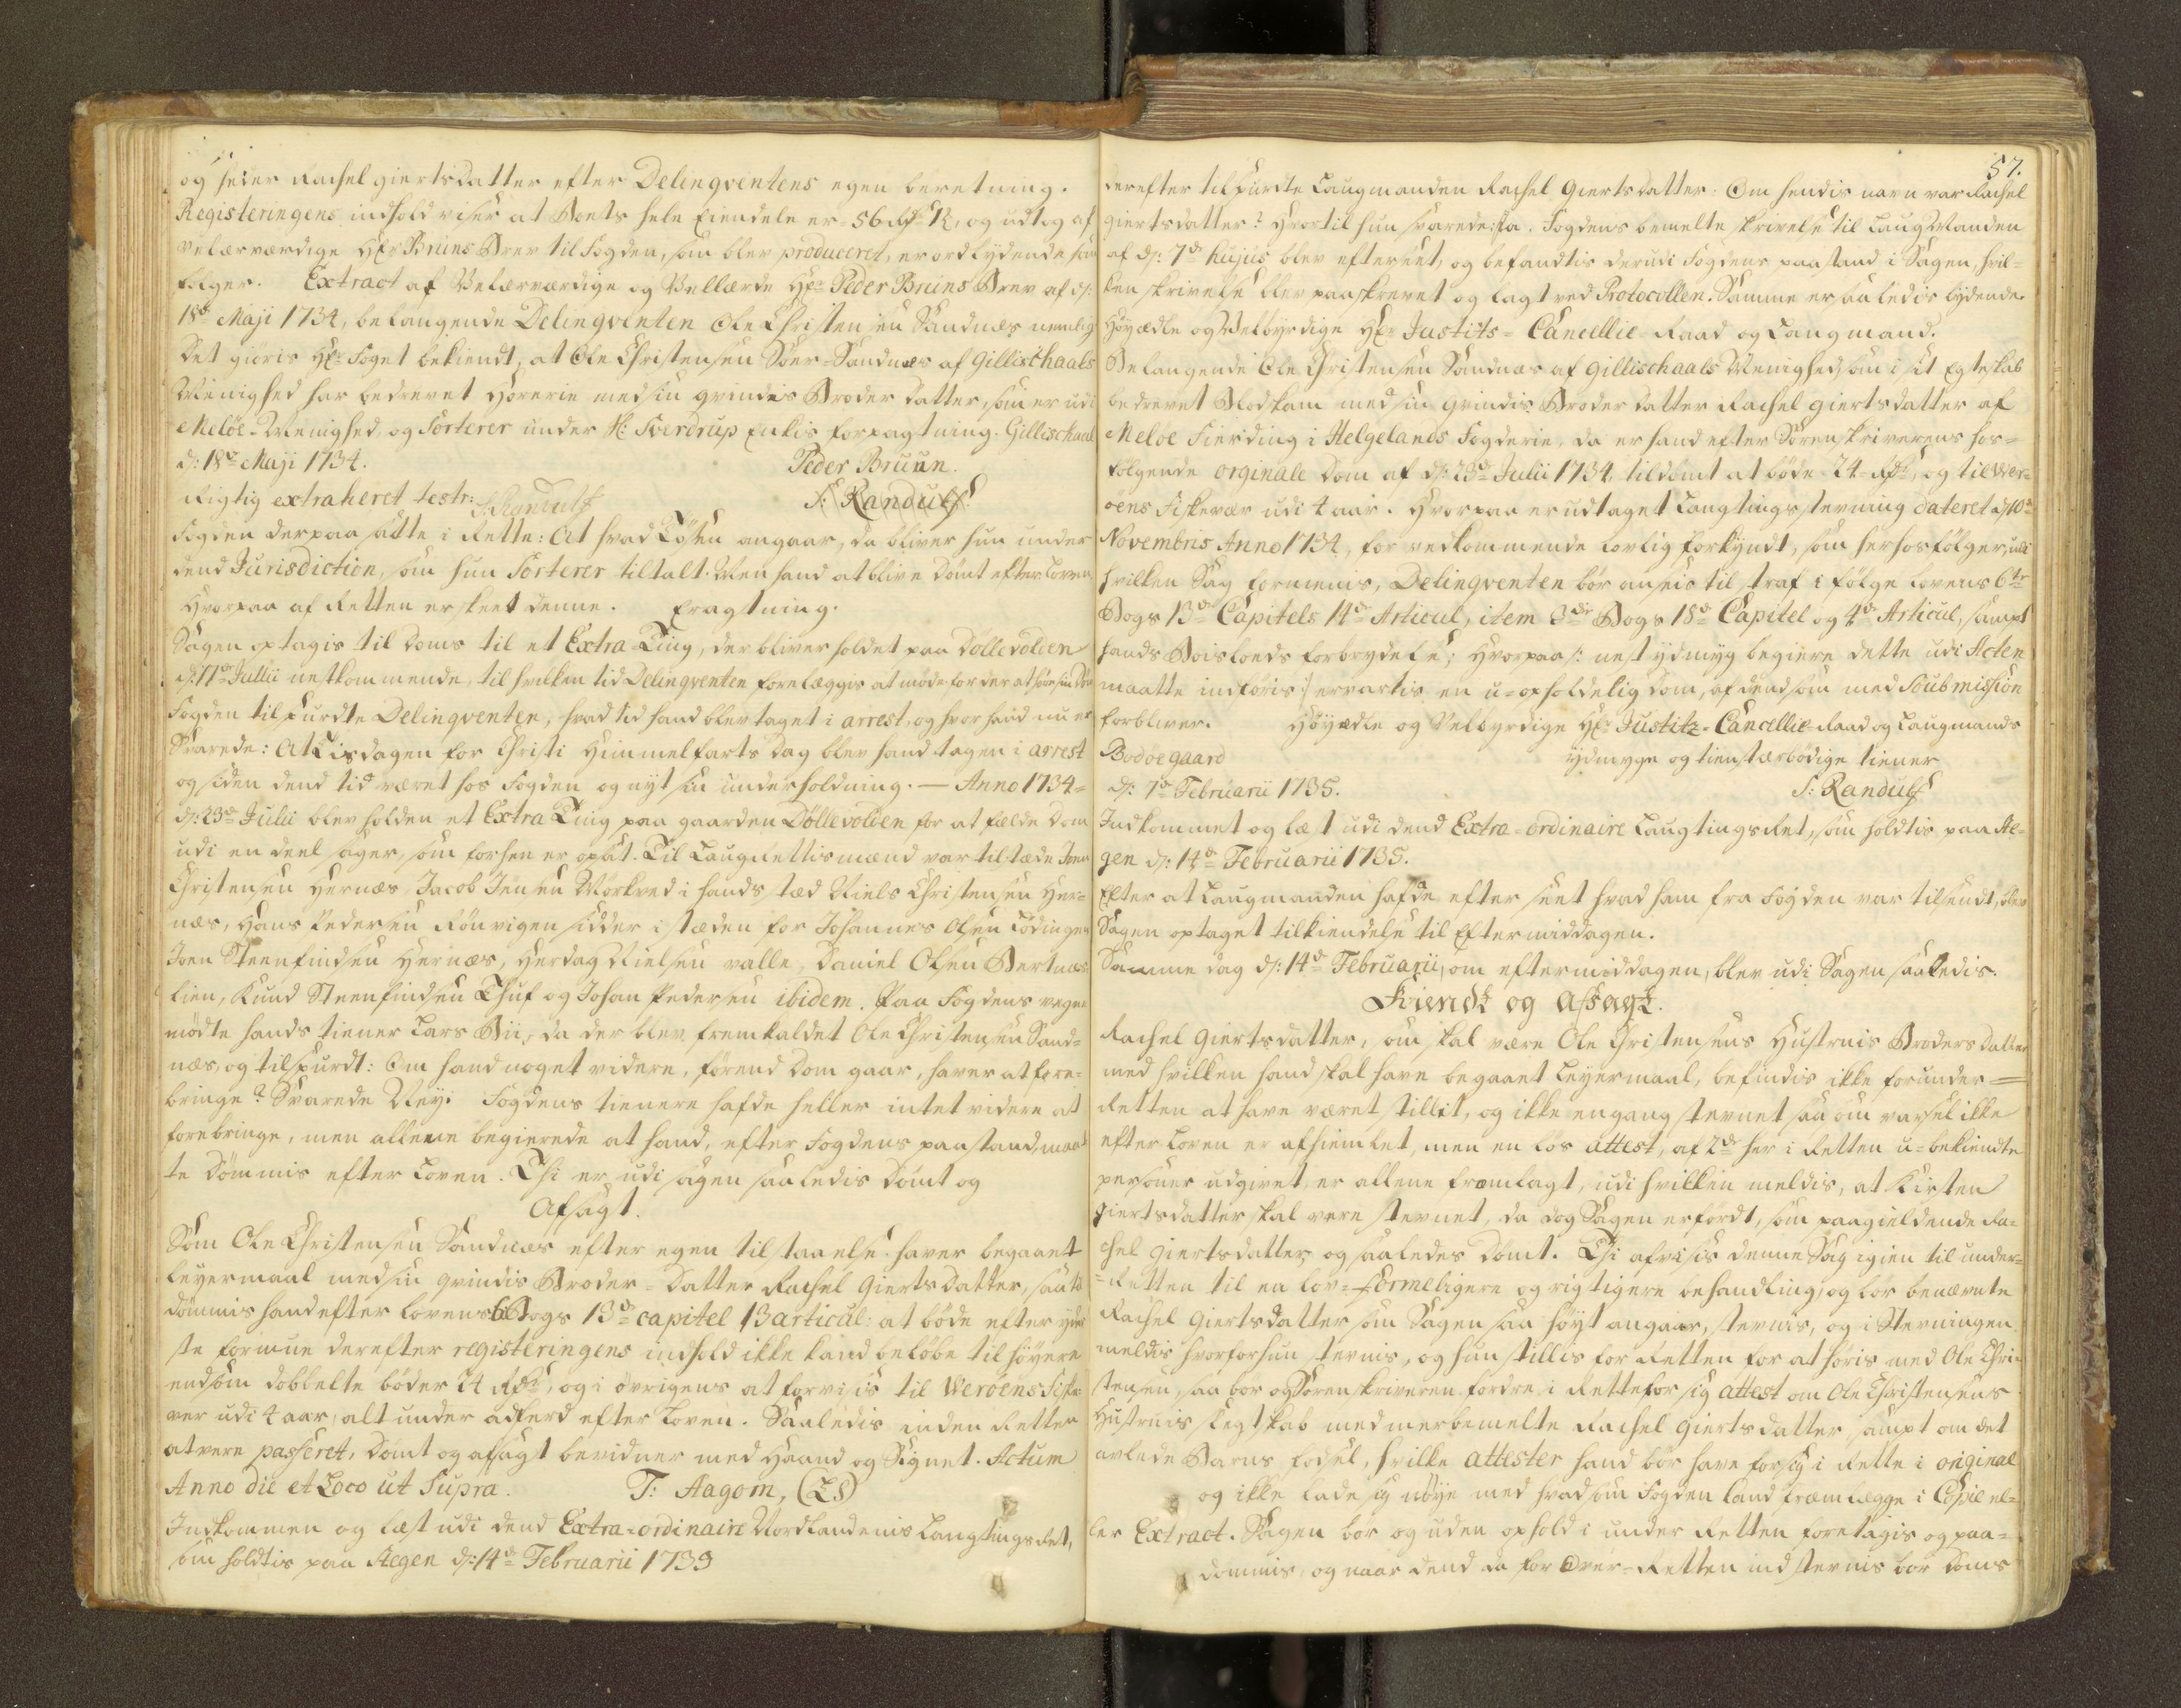 og heder Rachel giertsdatter efter Delinqventens egen beretning.
Registeringens indhold viser at Boets hele Eiendele er 56 Rdr og udtog af
velærværdige Hr: Bruns Brev til Fogden, som blev produceret, er ordlydende som
følger. Extract af Velærværdige og Vellærde Hr: Peder Bruuns Brev af d:
18de Maji 1734, belangende Delinqventen Ole Christensen Sandnæs nemlig
Det gioris Hr: Foget bekiendt, at Ole Christensen Søer-Sandnæs af Gillischaals
Menighed har bedrevet Horerie med sin qvindes Broder datter, som er udi
Meløe-Menighed og Sorterer under Sverdrup Enkis forpagtning. Gillischaal
d: 18de Maji 1734. Peder Bruun.
Rigtig extraheret testr: S: Randulf S: Randulf
Fogden derpaa satte i Rette: At hvad Tøsen angaar, da bliver hun under
dend Jurisdiction, som hun Sorterer tiltalt. Men hand at blive dømt efter Loven
Hvorpaa af Retten er skeet denne. Eragtning.
Sagen optagis til Doms til et Extra-Ting, der bliver holdet paa Dollevolden
d: Julii nestkommende, til hvilken tid Delinqventen forelæggis at møde for der at høre sin Dom
Fogden tilspurdte Delinqventen, hvad tid hand blev taget i arrest, og hvor hand nu er
Svarede: At Tisdagen for Christi Himmelfarts Dag blev hand tagen i arrest
og siden dend tid været hos Fogden og nyt sin underholdning. — Anno 1734-
d: 23de Julii blev holden et Extra Ting paa gaarden Döllevolden for at fælde Dom
udi en deel sager, som forhen er opsat. Til Laug Rettismænd var tiltæde Joen
Christensen Hernæs, Jacob Jensen Mörkved i hands stæd Niels Christensen Her-
næs, Hans Pedersen Rönvigen sidder i stæden for Johannes Olsen Lödingen
Joen Steenfindsen Hernæs, Herdag Nielsen valle, Daniel Olsen Bertnæs
lien, Knud Steenfindsen Thuf og Johan Pedersen ibidem. Paa Fogdens vegne
mödte hands tiener Lars Bii, da der blev fremkaldet Ole Christensen Sand-
næs, og tilspurdt: Om hand noget videre, førend Dom gaar, haver at fore-
bringe? Svarede Ney. Fogdens tienere hafde heller intet videre at
forebringe, men alleene begierede at hand, efter Fogdens paastand, maat
te dömmis efter Loven. Thi er udi sagen saaledis Dömt og
Afsagt.
Som Ole Christensen Sandnæs efter egen tilstaaelse haver begaaet
Leyermaal med sin qvindis Broder-Datter Rachel Giertsdatter, saa
dömmis hand efter Lovens 6te Bogs 13de capitel 13 articul: at böde efter yders
ste formue derefter registeringens indhold ikke kand belöbe til höyere
end som dobbelte böder 24 Rdr, og i övrigens at forviises til Weröens Fiske
ver udi 4 aar, alt under adferd efter Loven. Saaledis inden Retten
at vere passeret, Dömt og afsagt bevidner med Haand og Signet. Actum
Anno die et Loco ut Supra. T: Aagom, (LS)
Indkommen og læst udi dend Extra-ordinaire Nordlandenis Langtings Ret,
som holdtis paa Aegen d: 14de Februarii 1735
57.
derefter tilspurdte Laugmanden Rachel Giertsdatter. Om hendis navn var Rachel
giertsdatter? Hvortil hun svarede: Ja. Fogdens bemelte skrivelse til Laug Manden
af d: 7de hujus blev efterseet, og befandtis derudi Fogdens paastand i Sagen, hvil-
ken skrivelse blev paaskrevet og lagt ved Protocollen. Samme er saaledis lydende.
Höyædle og Velbyrdige Hr: Justits-Cancellie-Raad og Laugmand.
Belangende Ole Christensen Sandnæs af Gillischaals Menighed, som i sit Egteskab
bedrevet Blodskam med sin Qvindis Broder datter Rachel giertsdatter af
Meløe Fierding i Helgelands Fogderie, da er hand efter Sorenskriverens hos-
følgende orginale Dom af d: 23de Julii 1734. tildömt at böde 24 Rdr, og til Wer-
öens Fiskevær udi 4 aar. Hvorpaa er udtaget Laugtings stevning dateret d: 10de
Novembris Anno 1734, for vedkommende lovlig forkyndt, som herhos følger, udi
hvilken Sag formenis, Delinqventen bör ansees til straf i følge Lovens 6te
Bogs 13de Capitels 14de Articul, item 3die Bogs 18de Capitel og 4de Articul, sampt
hands Boislods forbrydelse; Hvorpaa /: nest ydmyg begiere dette udi Acten
maatte indføris :/ ervartis en u-opholdelig Dom, af dend som med Soubmission
forbliver. Höyædle og Velbyrdige Hr: Justitz-Cancellie-Raad og Laugmands
Bodøegaard ydmyge og tienstærbödige tiener
d: 7de Februarii 1735. S: Randulf
Indkommet og læst udi dend Extra-ordinaire Laugtings Ret, som holdtis paa Ae-
gen d: 14de Februarii 1735.
Efter at Laugmanden hafde efter seet hvad ham fra Fogden var tilsendt, blev
Sagen optaget til kiendelse til Eftermiddagen.
Samme dag d: 14de Februarii, om eftermiddagen, blev udi Sagen saaledis.
Kiendt og Afsagt.
Rachel Giertsdatter, som skal være Ole Christensens Hustruis Broders Datter
med hvilken hand skal have begaaet Leyermaal, befindis ikke for under=
Retten at have været stillet, og ikke engang stevnet saasom varsel ikke
efter Loven er afhiemlet, men en lös attest, af 2de her i Retten u-bekiendte
personer udgivet, er allene fremlagt, udi hvilken meldis, at Kirsten
giertsdatter skal vere stevnet, da dog Sagen er fördt, som paagieldende Ra-
chel Giertsdatter og saaledes Dömt. Thi afvises denne Sag igien til under-
=Retten til en lov=formeligere og rigtigere behandling, og bör benævnte
Rachel Giertsdatter som Sagen saa höyt angaar, stevnis, og i Stevningen
meldis hvorfor hun stevnis, og hun stillis for Retten for at höris med Ole Chri-
stensen, saa bör og Sorenskriveren fordre i Rette for sig attest om Ole Christensens
Hustruis Slegtskab med merbemelte Rachel Giertsdatter sampt om det
avlede Barns Fødsel, hvilke attester hand bör have for sig i Rette i original
og ikke lade sig nöye med hvad som Fogden kand fremlægge i Copie el-
ler Extract. Sagen bör og uden ophold i under Retten foretagis og paa-
dömmis, og naar dend da for Over-Retten indstevnis bör Doms